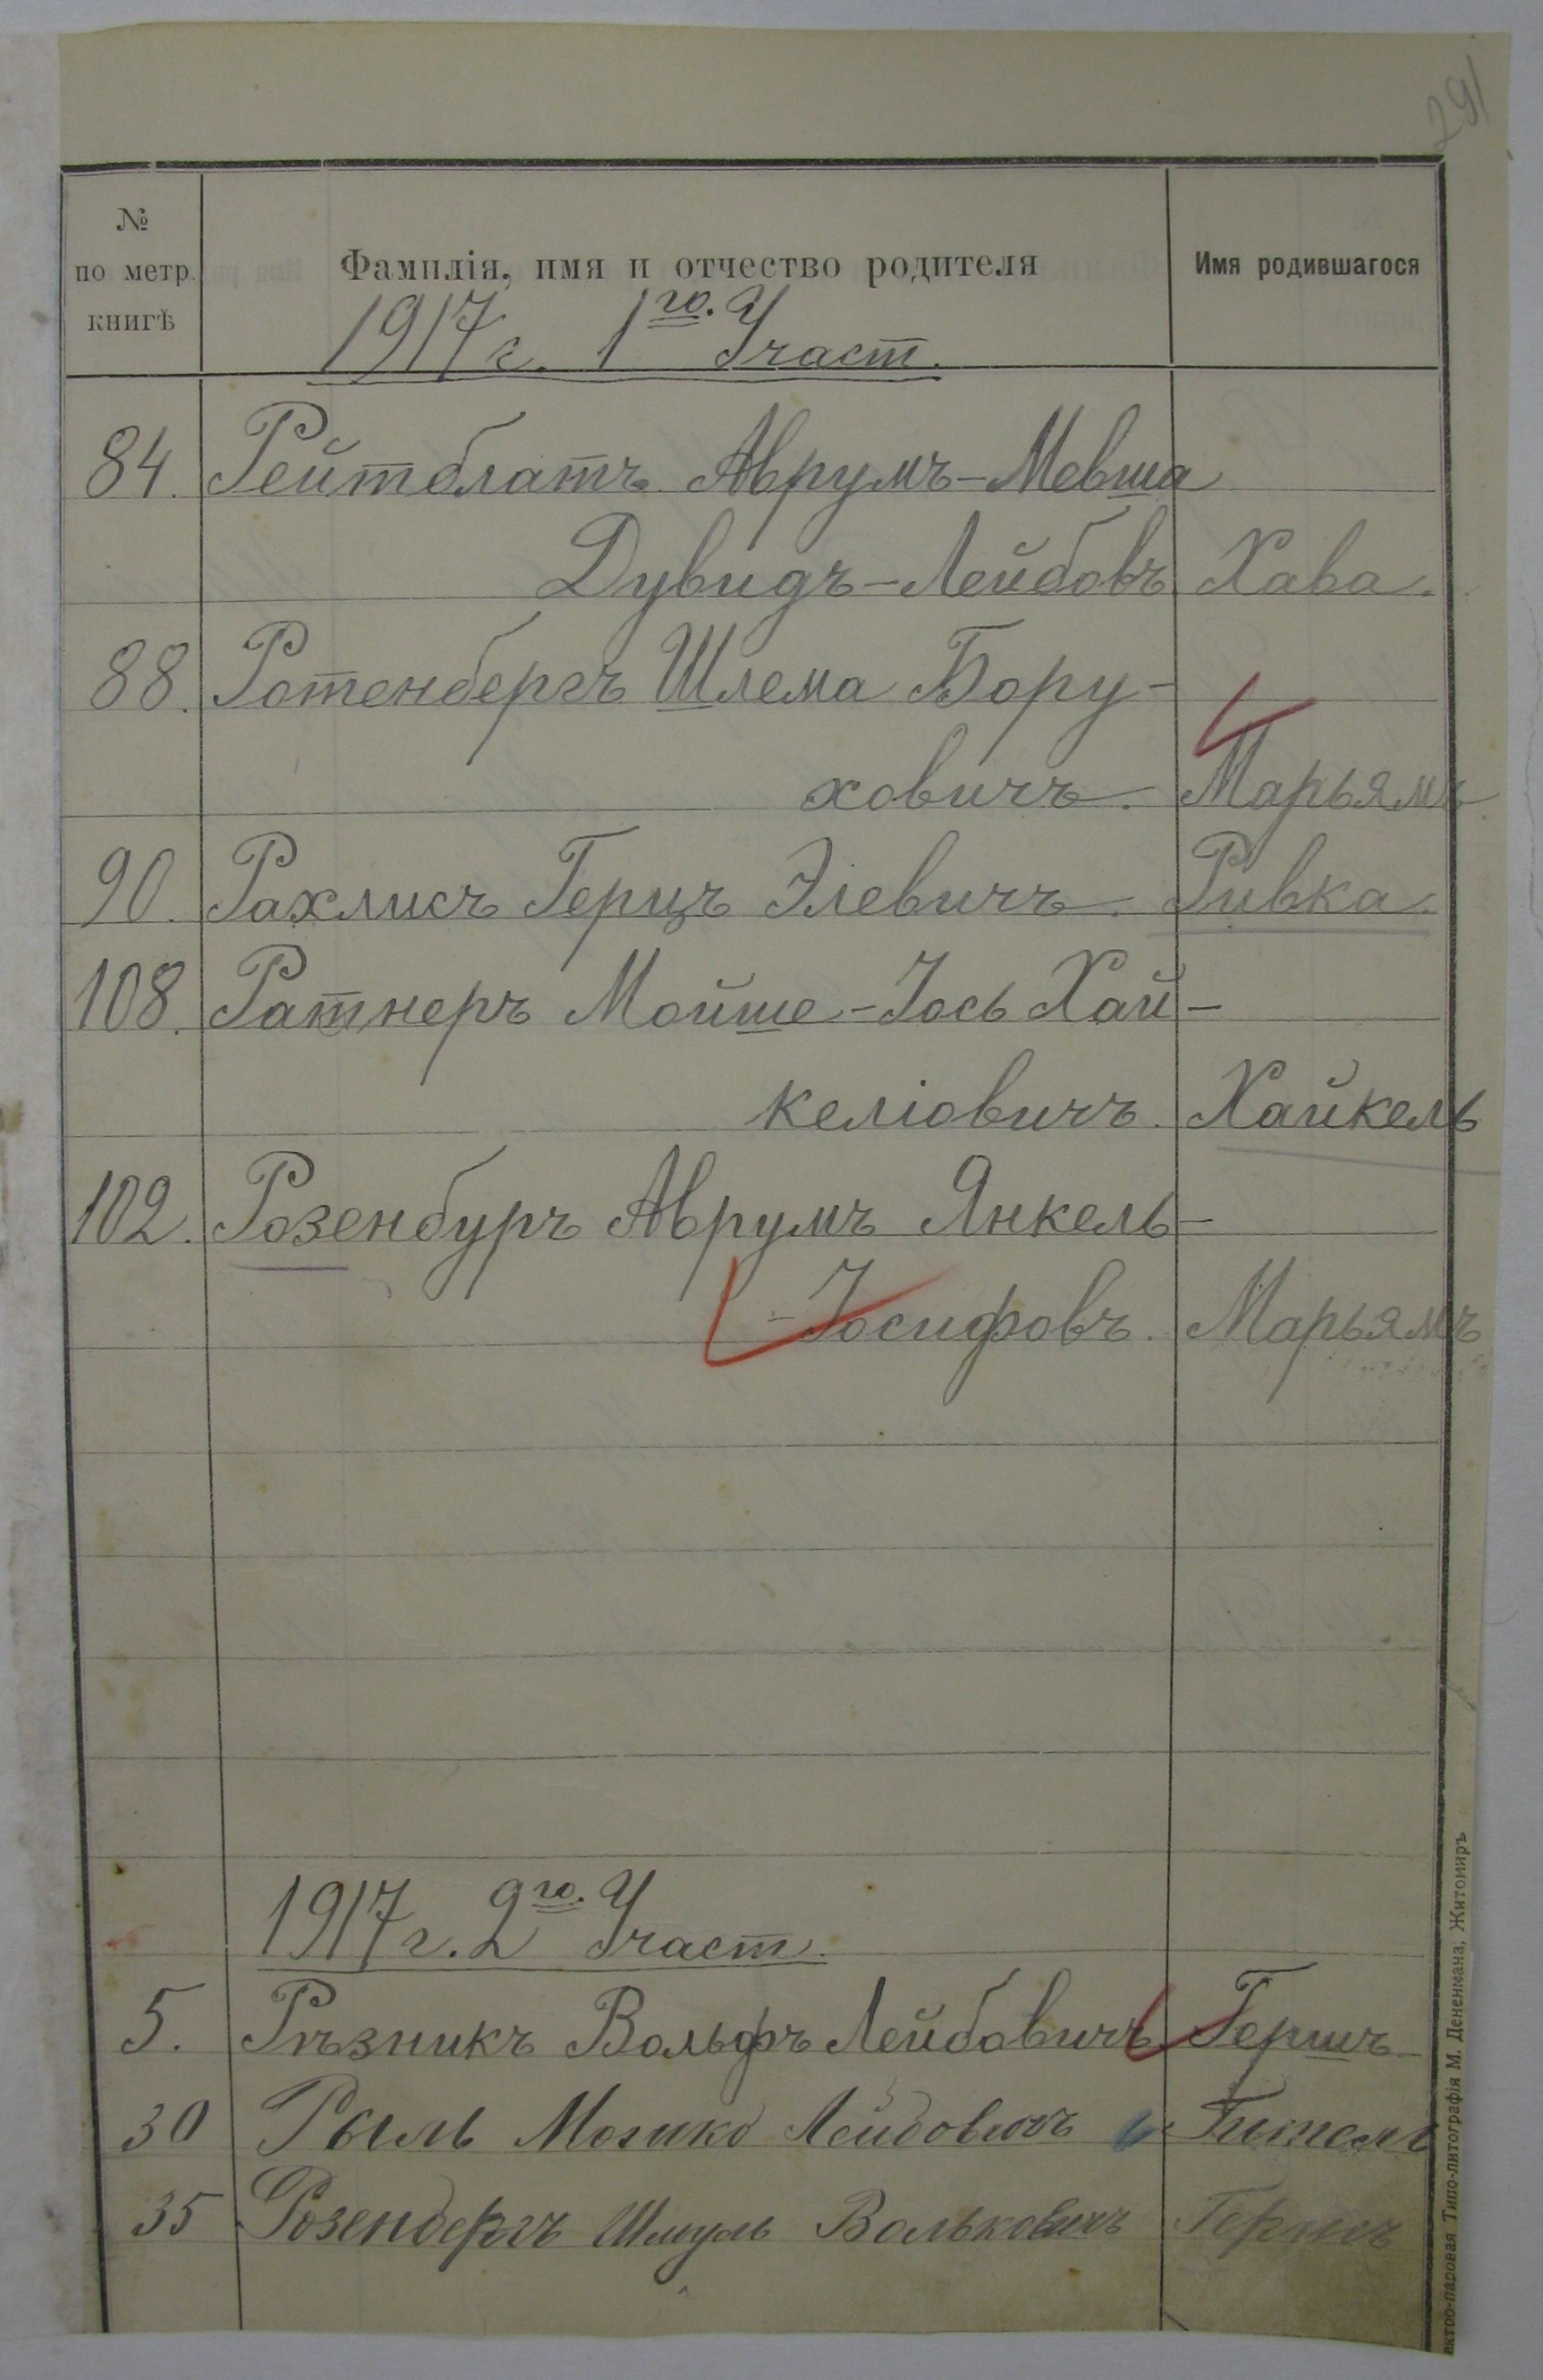 291
№ по метр. книгѣ Фамилія, имя и отчество родителя Имя родившагося
1917 г. 1го. Участ.
84. Рейтблатъ Аврумъ-Мевша
Дувидъ-Лейбовъ Хава.
88. Ротенбергъ Шлема Бору-
ховичъ. Марьямъ
90. Рахлисъ Герцъ Элевичъ. Ривка.
108. Ратнеръ Мойше-Іось Хай-
келіовичъ. Хайкель
102. Розенбуръ Аврумъ Янкель-
-Іосифовъ. Марьямъ
1917 г. 2го. Участ.
5. Рѣзникъ Вольфъ Лейбовичъ Гершъ
30 Рыль Мошко Лейбовичъ Гитель
35 Розенбергъ Шмуль Вольковичъ Гершъ
ектро-паровая Типо-литографія М. Дененмана, Житомиръ